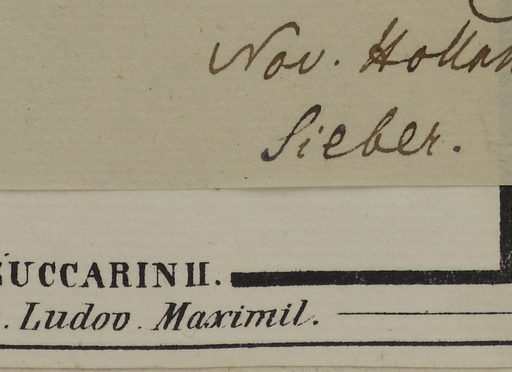 Nov. Hollan
Sieber.
ZUCCARINII.
. Ludov. Maximil.